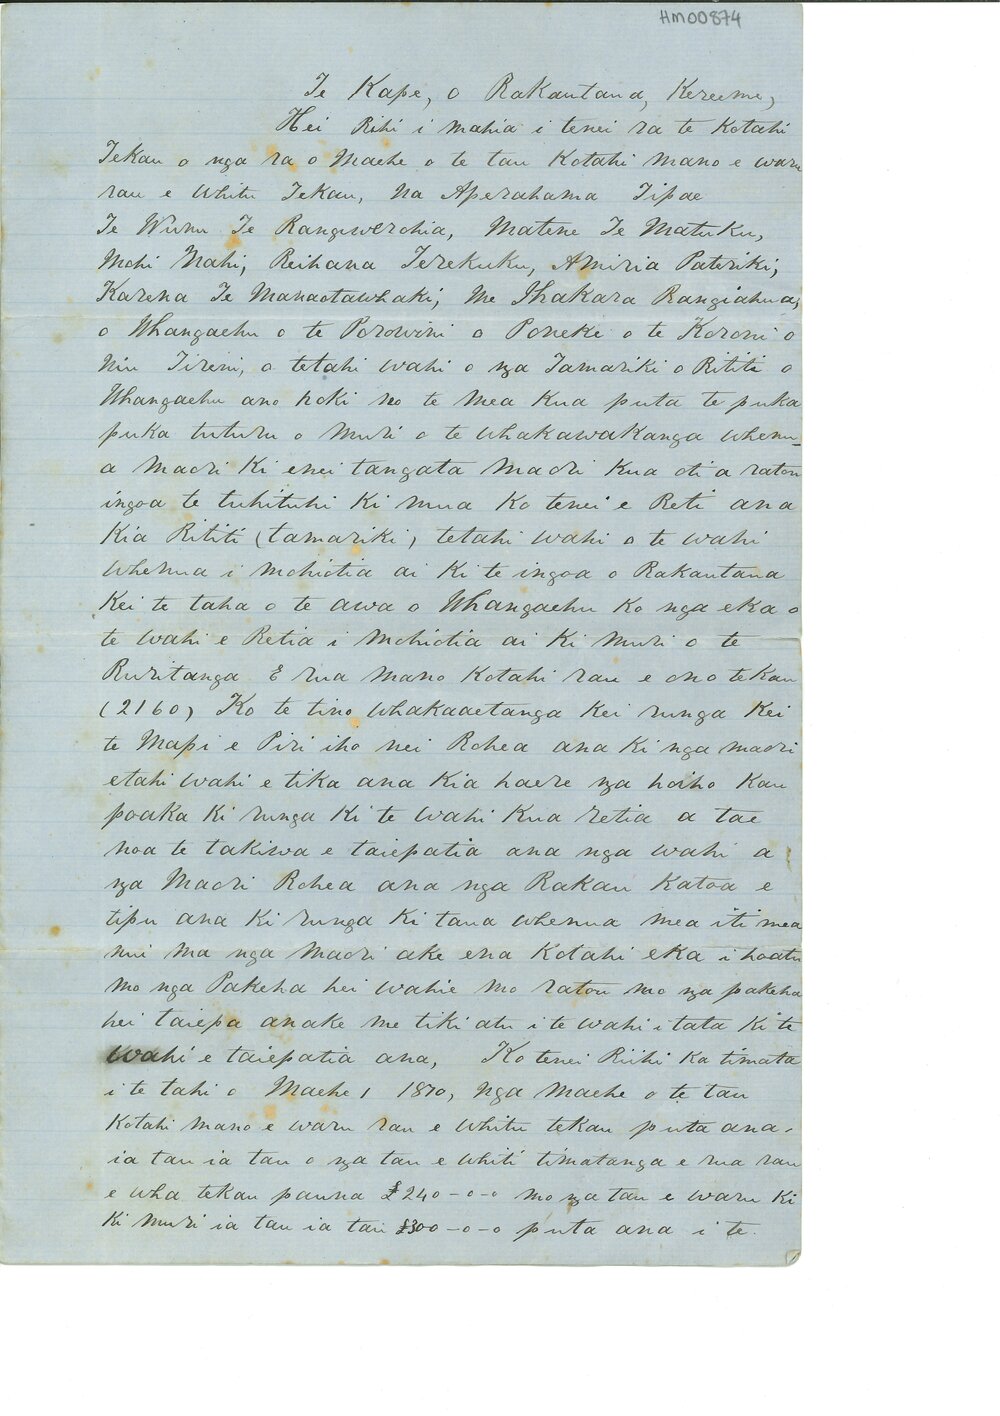 HM00874
Te Kape, o Rakautaua, Kereeme,
Hei Rihi i mahia i tenei ra te Kotahi
Tekau o nga ra o Maehe o te tau Kotahi mano e waru
rau e Whitu Tekau, Na Aperahama Tipae
Te Wunu Te Rangiwerohia, Matene Te Matuku,
Mohi Mahi, Reihana Terekuku, Amiria Pateriki,
Karena Te Manaotawhaki, Me Ihakara Rangiahua,
o Whangaehu o te Porowini o Poneke o te Koroni o
Niu Tireni, o tetahi wahi o nga Tamariki o Rititi o
Whangaehu ano hoki no te mea Kua puta te puka
puka tuturu o Muri o te Whakawakanga Whenu-
a Maori Ki enei tangata Maori Kua oti a ratou
ingoa te tuhituhi Ki mua Ko tenei e Reti ana
Kia Rititi (tamariki) tetahi wahi o te wahi
Whenua i Mohiotia ai Ki te ingoa o Rakautaua
Kei te taha o te awa o Whangaehu Ko nga eka o
te wahi e Retia i Mohiotia ai Ki Muri o te
Ruritanga E rua Mano Kotahi rau e ono tekau
(2160) Ko te tino Whakaaetanga Kei runga Kei
te Mapi e Piri iho nei Rohea ana Ki nga maori
etahi wahi e tika ana Kia haere nga hoiho Kau
poaka Ki runga Ki te wahi Kua retia a tae
noa te takiwa e taiepatia ana nga wahi a
nga Maori Rohea ana nga Rakau Katoa e
tipu ana Ki runga Ki taua Whenua mea iti mea
nui ma nga Maori ake ena Kotahi eka i hoatu
mo nga Pakeha hei wahie mo ratou mo nga pakeha
hei taiepa anake me tiki atu i te wahi i tata Ki te
wahi e taiepatia ana, Ko tenei Riihi Ka timata
i te tahi o Maehe 1 1870, Nga Maehe o te tau
Kotahi Mano e waru rau e Whitu tekau puta ana-
ia tau ia tau o nga tau e Whiti timatanga e rua rau
e wha tekau pauna £240-0-0 mo nga tau e waru Ki
Ki Muri ia tau ia tau £300-0-0 puta ana i te.